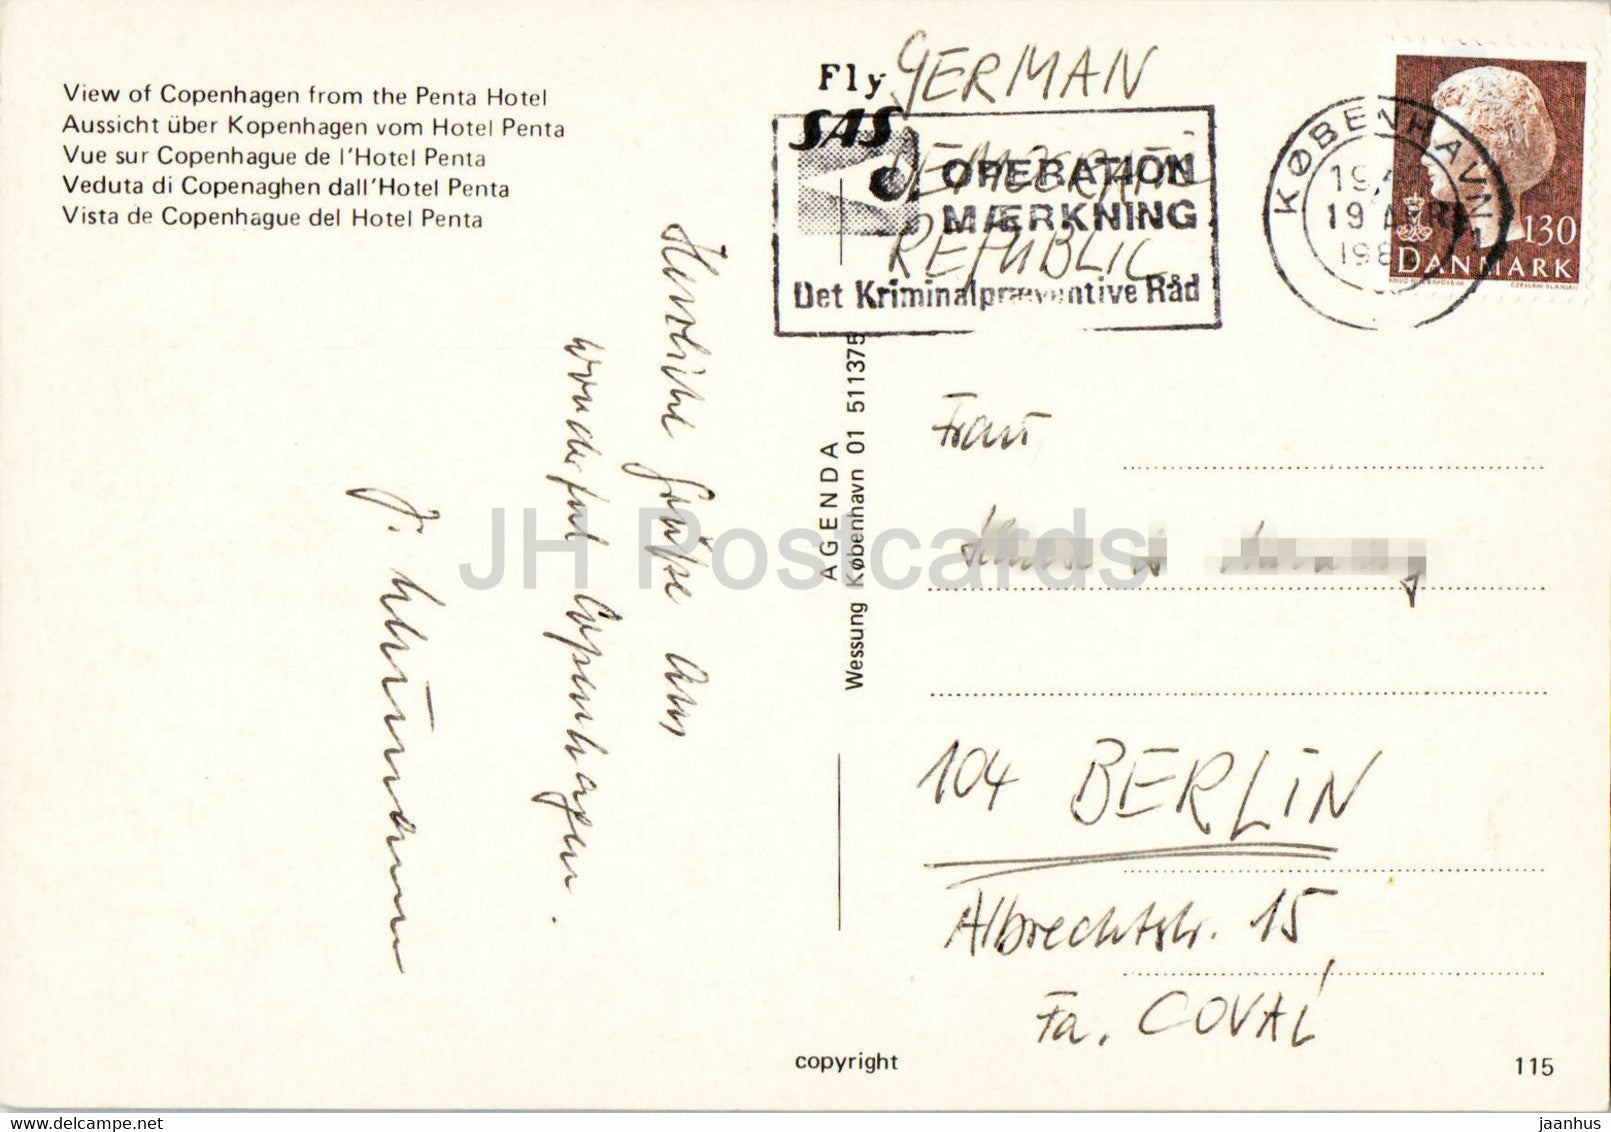 View of Copenhagen from the Penta Hotel
Aussicht über Kopenhagen vom Hotel Penta
Vue sur Copenhague de l'Hotel Penta
Veduta di Copenaghen dall'Hotel Penta
Vista de Copenhague del Hotel Penta
Fly
SAS
OPERATION
MÆRKNING
Det Kriminalpræventive Råd
GERMAN
DEMOCRATIC
REPUBLIC
KØBENHAVN
19 APR
130
DANMARK
CZESLAW SLANIA
Herzliche Grüße aus
wonderful Copenhagen.
AGENDA
Wessung København 01 511375
Frau
104 BERLIN
Albrechtstr. 15
Fa. COVAL
copyright
115
JH Postcards
jaanhus